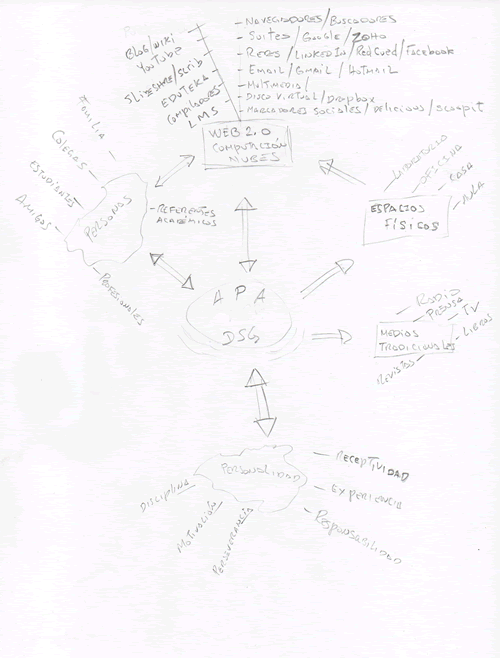 - NAVEGADORES/BUSCADORES
- SUITES/GOOGLE/ZOHO
- REDES/LINKEDIN/RedCued/Facebook
- EMAIL/GMAIL/HOTMAIL
- MULTIMEDIA/
- DISCO VIRTUAL/Dropbox
- MARCADORES SOCIALES/DELICIOUS/SCOOPIT
Blog/wiki
YOUTUBE
SLIDESHARE/SCRIB
EDUTEKA
COMPILADORES
LMS
WEB 2.0
COMPUTACIÓN
NUBES
FAMILIA
COLEGAS
ESTUDIANTES
AMIGOS
PERSONAS
- REFERENTES
ACADÉMICOS
PROFESIONALES
OFICINA
CASA
AULA
ESPACIOS
FÍSICOS
APA
DSG
RADIO
PRENSA
TV
LIBROS
MEDIOS
TRADICIONALES
REVISTAS
PERSONALIDAD
RECEPTIVIDAD
EXPERIENCIA
RESPONSABILIDAD
DISCIPLINA
MOTIVACIÓN
PERSEVERANCIA